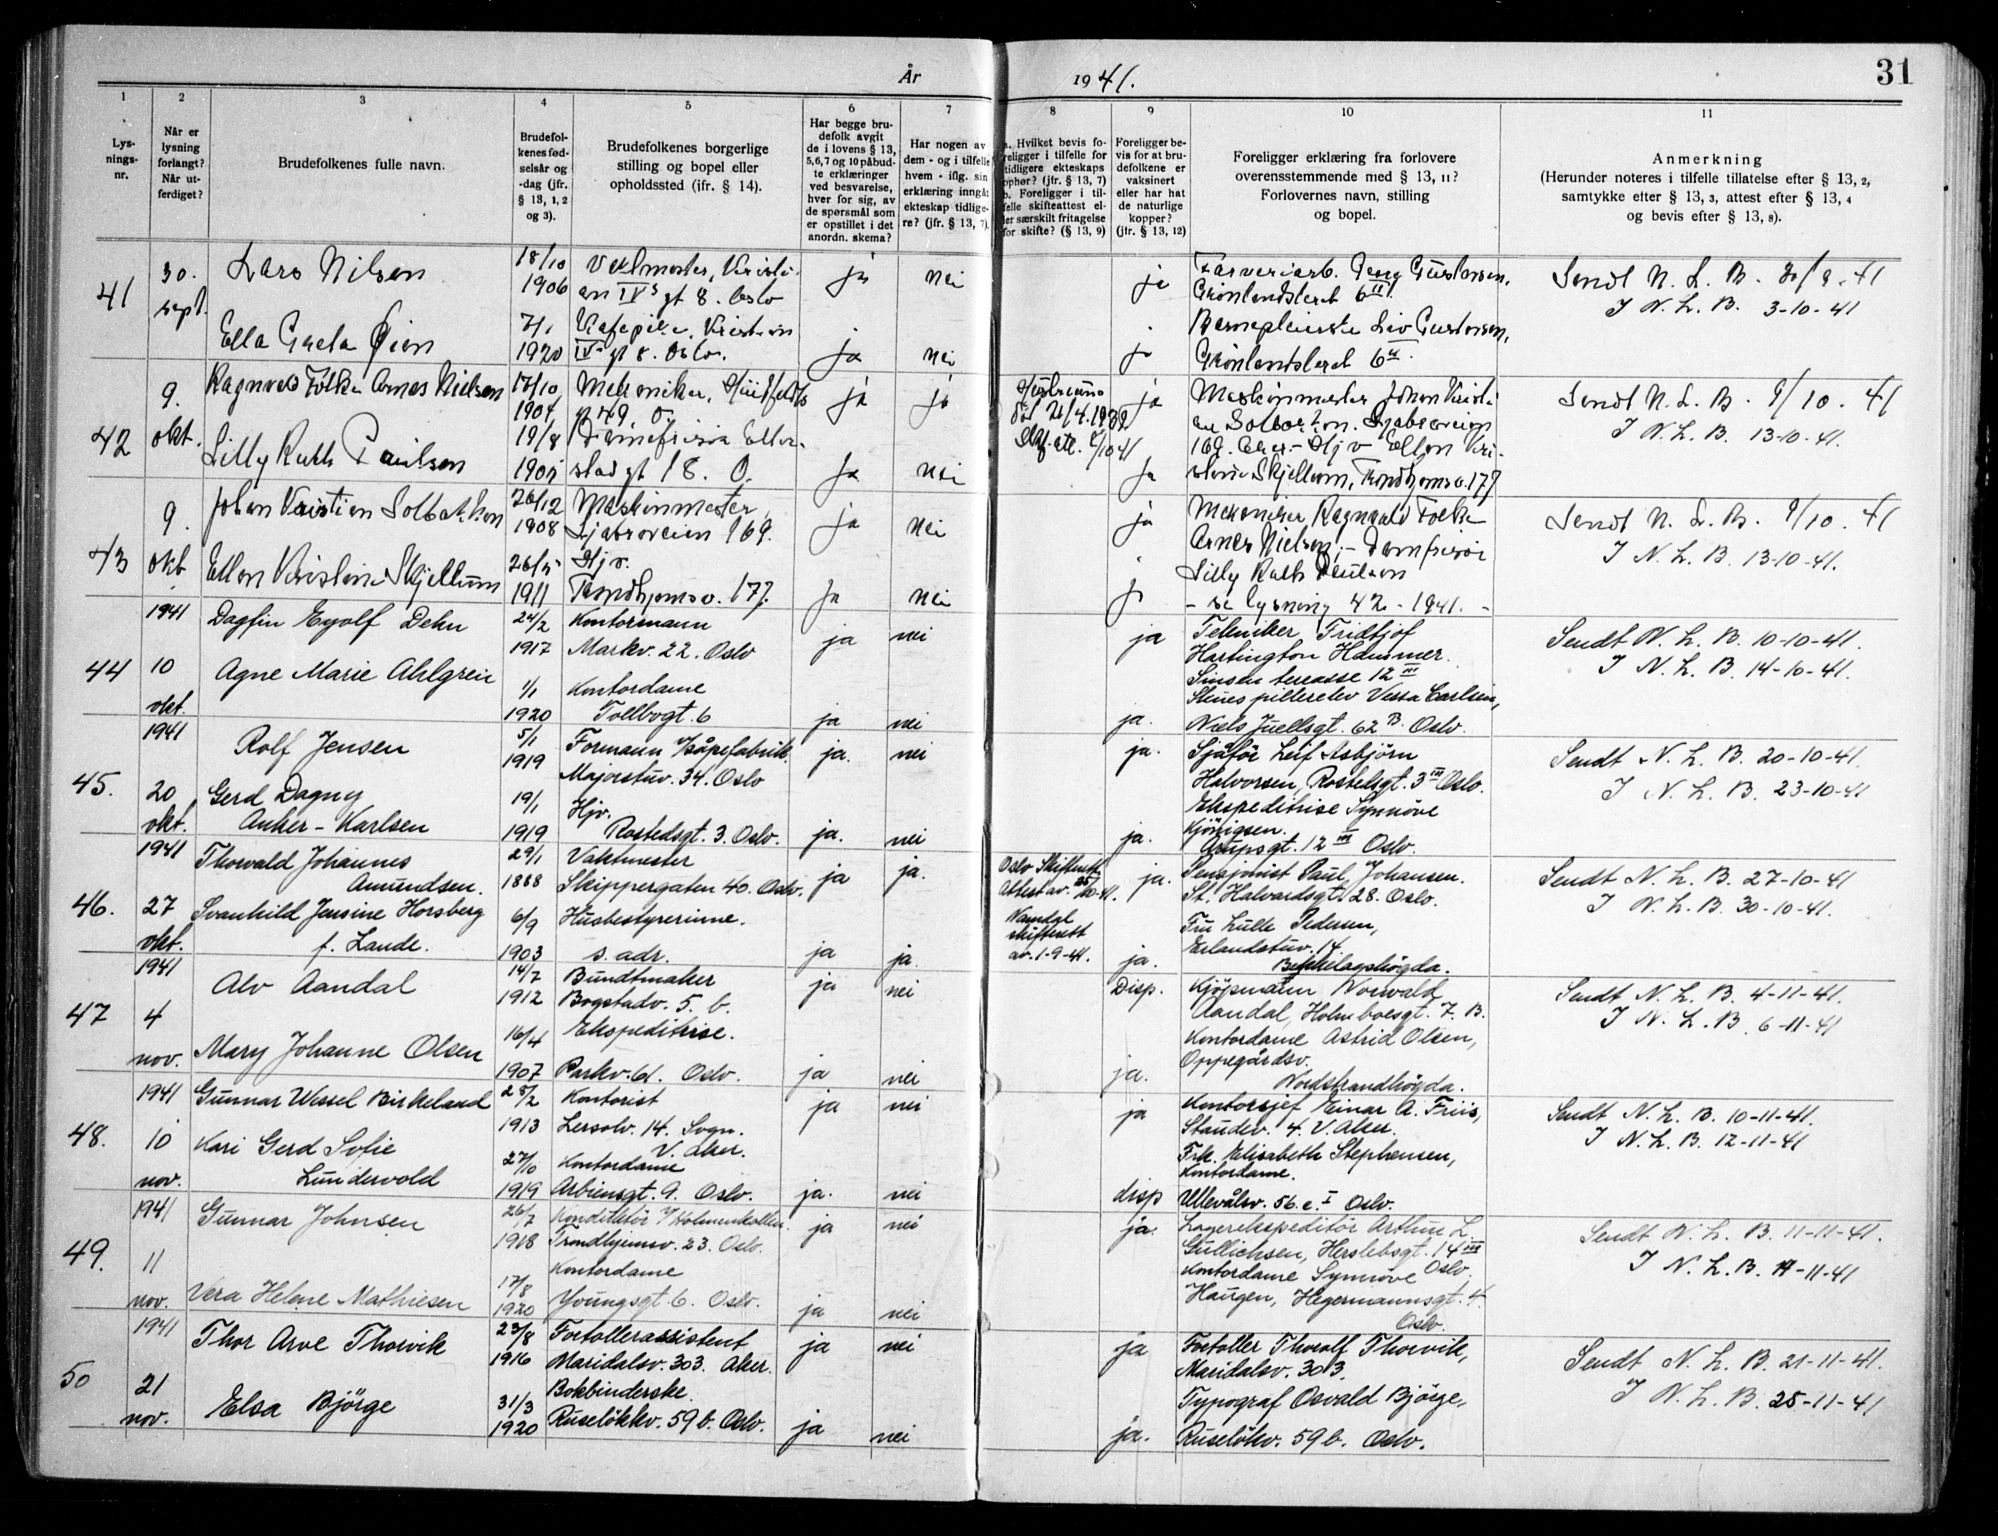 År 1941.
31
1 2 3 4 5 6 7 8 9 10 11
Lys-
nings-
nr.
Når er
lysning
forlangt?
Når ut-
ferdiget?
Brudefolkenes fulle navn.
Brudefol-
kenes fød-
selsår og
-dag (jfr.
§ 13, 1, 2
og 3).
Brudefolkenes borgerlige
stilling og bopel eller
opholdssted (ifr. § 14).
Har begge bru-
defolk avgit
de i lovens § 13,
5,6,7 og 10 påbud-
te erklæringer
ved besvarelse,
hver for sig, av
de spørsmål som
er opstillet i det
anordn. skema?
Har nogen av
dem - og i tilfelle
hvem - iflg. sin
erklæring inngåt
ekteskap tidlige-
re? (jfr. § 13, 7).
a. Hvilket bevis fo-
religger i tilfelle for
tidligere ekteskaps
ophør? (jfr. § 13, 7)
b. Foreligger i til-
felle skifteattest el-
ler særskilt fritagelse
for skifte? (§ 13, 9)
Foreligger be-
vis for at bru-
defolkene er
vaksinert
eller har hat
de naturlige
kopper?
(jfr. § 13, 12)
Foreligger erklæring fra forlovere
overensstemmende med § 13, 11?
Forlovernes navn, stilling
og bopel.
Anmerkning
(Herunder noteres i tilfelle tillatelse efter § 13, 2,
samtykke efter § 13, 3, attest efter § 13, 4
og bevis efter § 13, 8).
41
30.
sept.
Lars Nilsen
18/10
1906
Kristi-
an IVs gt 8. Oslo
ja
nei
ja
Georg Gustavsen,
Grønlandsleret 6 II
Sendt N. L. B. 30/9-41
I N. L. B. 3-10-41
Ella Greta Øien
7/1
1920
Kristian
IVs gt 8. Oslo.
ja
nei
ja
Liv Gustavsen,
Grønlandsleret 6
42
9.
okt.
Ragnvald Folke Arnes Nielsen
17/10
1904
Mekaniker, Huitfeldts
gt 49, O.
ja
ja
Hustruens
død 21/4.1932
ja
Maskinmester Johan Kristi-
an Solbakken. Ljabruveien
169. Aker. - Hjv Ellen Kri-
stine Skjellum, Trondhjemsv. 177
Sendt N. L. B. 9/10. 41
I N. L. B. 13-10-41.
Lilly Ruth Paulsen
19/8
1905
Damefrisør Eilert
18. O.
ja
nei
ja
43
9.
okt
Johan Kristian Solbakken
26/12
1908
Maskinmester
Ljabruveien 169.
ja
nei
ja
Mekaniker Ragnvald Folke
Arnes Nielsen, - Damfrisør
Lilly Ruth Paulsen
- se lysning 42 - 1941. -
Sendt N. L. B. 9/10. 41
I N. L. B. 13-10-41.
Ellen Kristine Skjellum
26/5
1911
Hjv.
Trondhjemsv. 177.
ja
nei
ja
44
1941
10
okt.
Dagfin Eyolf Dehn
24/2
1917
Kontormann
Markv. 22. Oslo
ja
nei
ja
Tekniker Fridtjof
Hartington Hammer.
Sinsen terrasse 12 III
Sendt N. L. B. 10-10-41.
I N. L. B. 14-10-41.
Agne Marie Ahlgren
1/1
1920
Kontordame
Tollbogt. 6
ja
nei
ja.
Skuespillerelev Vessa Carlsen,
Niels Juellsgt. 62 B. Oslo.
45.
1941
20
okt.
Rolf Jensen
5/1
1919
Formann v/såpefabrik.
Majorstuv. 34. Oslo
ja.
nei
ja.
Sjåfør Leif Asbjørn
Halvorsen, Rostedsgt. 3 III Oslo.
Sendt N. L. B. 20-10-41.
I N. L. B. 23-10-41
Gerd Dagny
Anker-Karlsen
19/1
1919
Hjv.
Rostedsgt. 3. Oslo.
ja.
nei
ja.
Ekspeditrise Synnöve
Kjönigsen.
Arupsgt. 12 III Oslo.
46.
1941
27
okt.
Thorvald Johannes
Amundsen.
29/1
1888
Vaktmester
Skippergaten 40. Oslo.
ja
ja.
Oslo Skifterett
Attest av. 25/10-41.
ja.
Pensjonist Paul Johansen.
St. Halvardsgt. 28. Oslo.
Sendt N. L. B. 27-10-41
I N. L. B. 30-10-41.
Svanhild Jensine Horsberg
f. Lande.
6/9
1903
Husbestyrerinne.
s. adr.
ja
ja.
Namdal
skifterett
av. 1-9-41.
ja.
Fru Lulle Pedersen,
Erlandstuv. 14.
Bekkelagshögda.
47
1941
4
nov.
Alv Aandal
14/7
1912
Bundtmaker
Bogstadv. 5. b.
ja
nei
Disp.
Kjöpmann Norvald
Aandal, Holmboesgt. 7. B.
Sendt N. L. B. 4-11-41.
I N. L. B. 6-11-41
Mary Johanne Olsen
16/4
1907
Ekspeditrise.
Parkv. 61. Oslo.
ja
nei
ja.
Kontordame Astrid Olsen,
Oppegårdsv.
Nordstrandhögda.
48.
1941
10
nov.
Gunnar Wessel Birkeland
28/2
1913
Kontorist
Lersolv. 14. Sogn.
V. Aker.
ja
nei
ja
Kontorsjef Einar A. Friis,
Staudev. 4. V. Aker.
Sendt N. L. B. 10-11-41.
I N. L. B. 12-11-41
Kari Gerd Sofie
Lundervold
27/10
1919
Kontordame
Arbiensgt. 9. Oslo.
ja.
nei
disp
Frk. Elisabeth Stephensen,
Kontordame.
Ullevålsv. 56. c. I Oslo.
49.
1941
11
nov.
Gunnar Johnsen
26/7
1918
Konditor v/Holmenkollen.
Trondhjemsv. 23. Oslo.
ja
nei
ja.
Lagerekspeditör Arthur L.
Gullichsen, Herslebsgt. 14 III
Oslo.
Sendt N. L. B. 11-11-41.
I N. L. B. 14-11-41
Vera Helene Mathiesen
17/8
1920
Kontordame
Youngsgt. 6. Oslo.
ja
nei
Kontordame Synnöve
Haugen, Hegermannsgt. 4.
Oslo.
50
1941
21
nov.
Thor Arve Thorvik
23/8
1916
Fortollerassistent
Maridalsv. 303. Aker.
ja
nei
ja
Fortoller Thoralf Thorvik,
Maridalsv. 303.
Sendt N. L. B. 21-11-41.
I N. L. B. 25-11-41
Elsa Björge
31/3
1920
Bokbinderske.
Ruselökkv. 59 b. Oslo.
ja
nei
ja.
Typograf Osvald Björge,
Ruselökv. 59 b. Oslo.